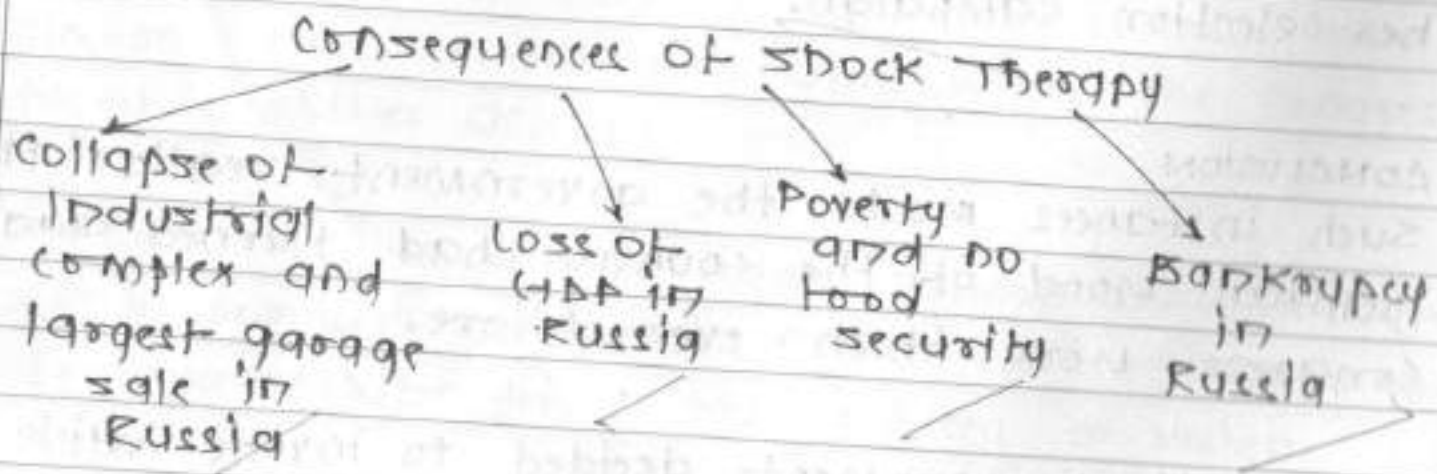 Consequences of Shock Therapy
Collapse of
Industrial
complex and
largest garage
sale in
Russia
Loss of
GDP in
Russia
Poverty
and no
food
security
Bankrupcy
in
Russia